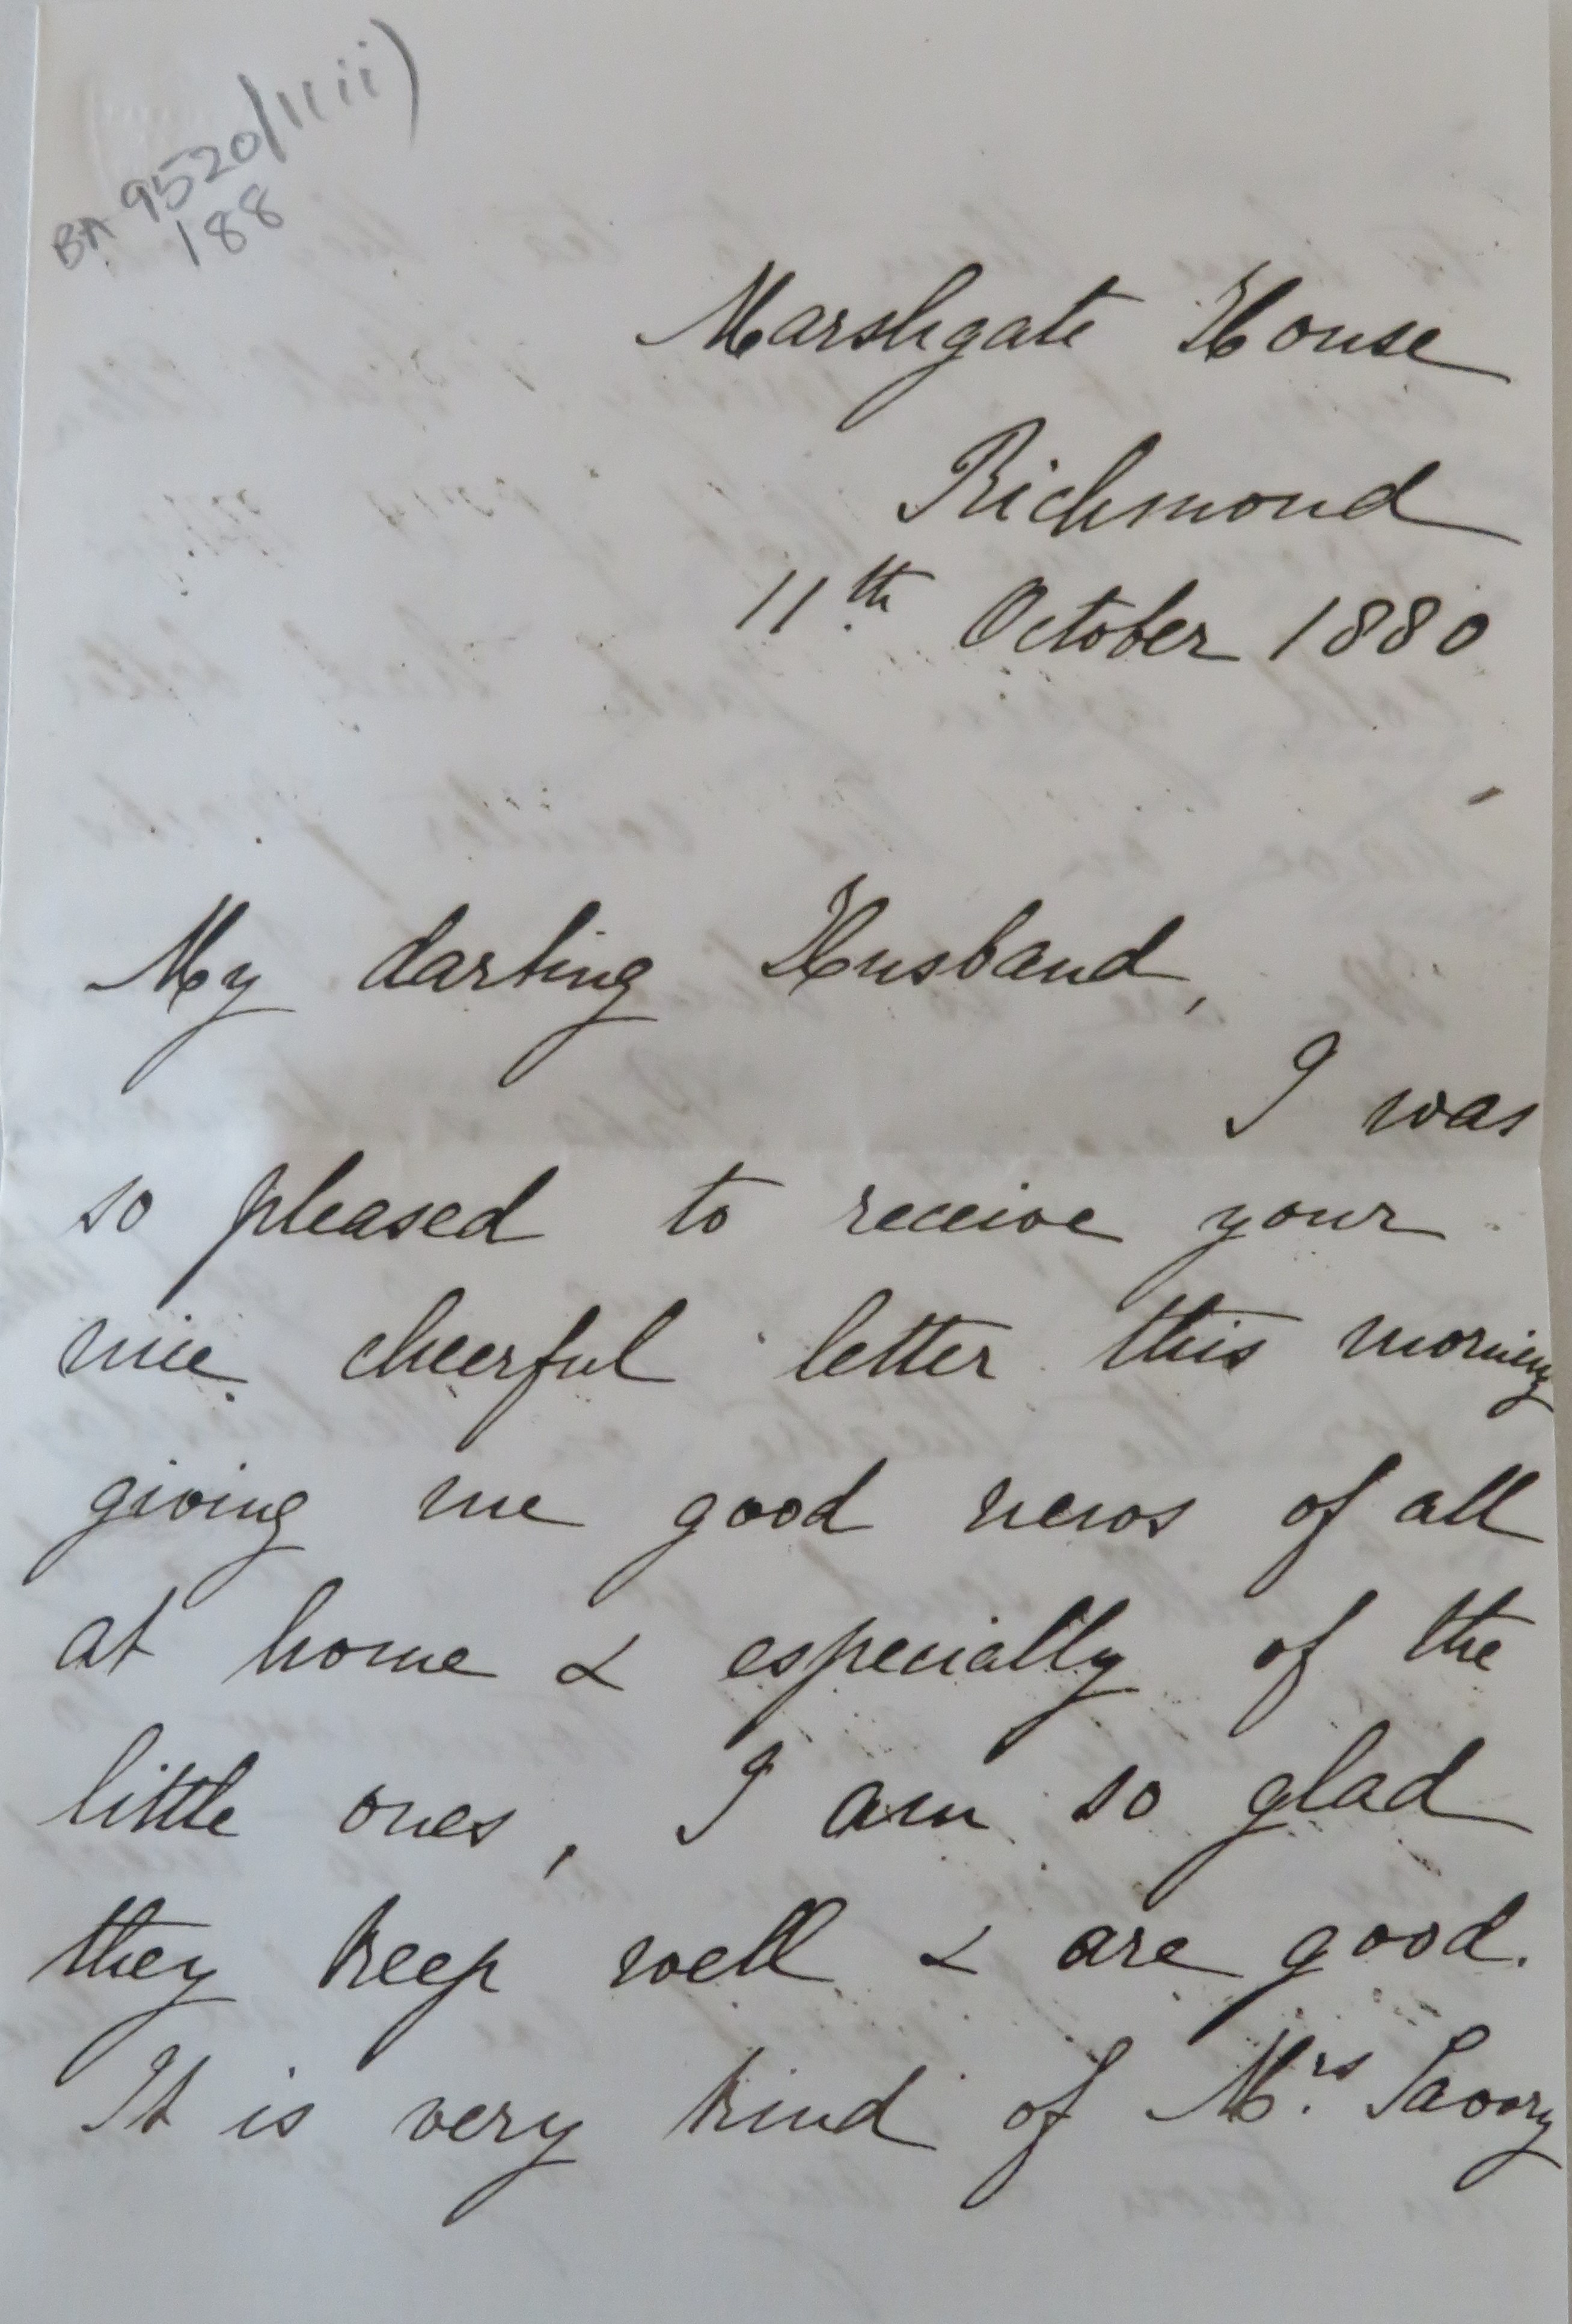 BA 9520/1(ii)
188
Marshgate House
Richmond
11th October 1880
My darling Husband,
I was
so pleased to receive your
nice cheerful letter this morning
giving me good news of all
at home & especially of the
little ones, I am so glad
they keep well & are good.
It is very kind of Mrs Savory